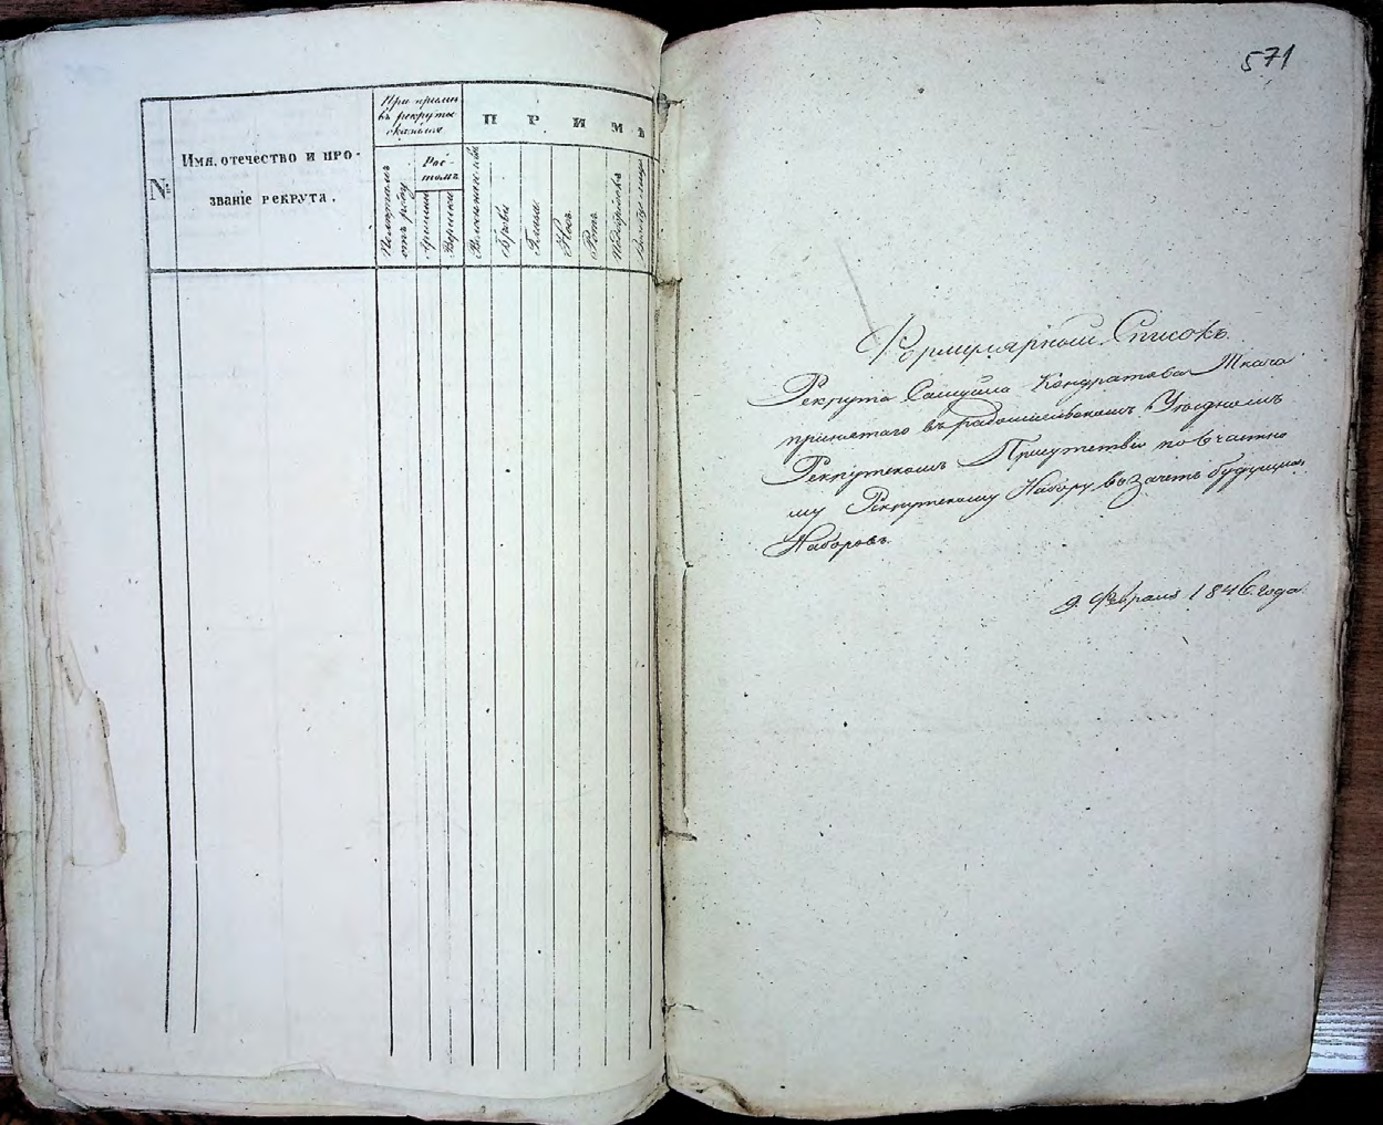 №
Имя, отечество и про-
званіе рекрута.
При пріемѣ
въ рекруты
оказался
Рос-
томъ
отъ роду
Аршинъ
Вершковъ
П Р И М Ѣ
Брови
Глаза
Носъ
Ротъ
Подбородокъ
571
Формулярный Списокъ
Рекрута Самуйла Кондратова Ткача
принятаго въ Радомысльскомъ Уѣздномъ
Рекрутскомъ Присутствіи по 6 частно
му Рекрутскому Набору въ Зачетъ будущихъ
Наборовъ.
9. Февраля 1846 года.